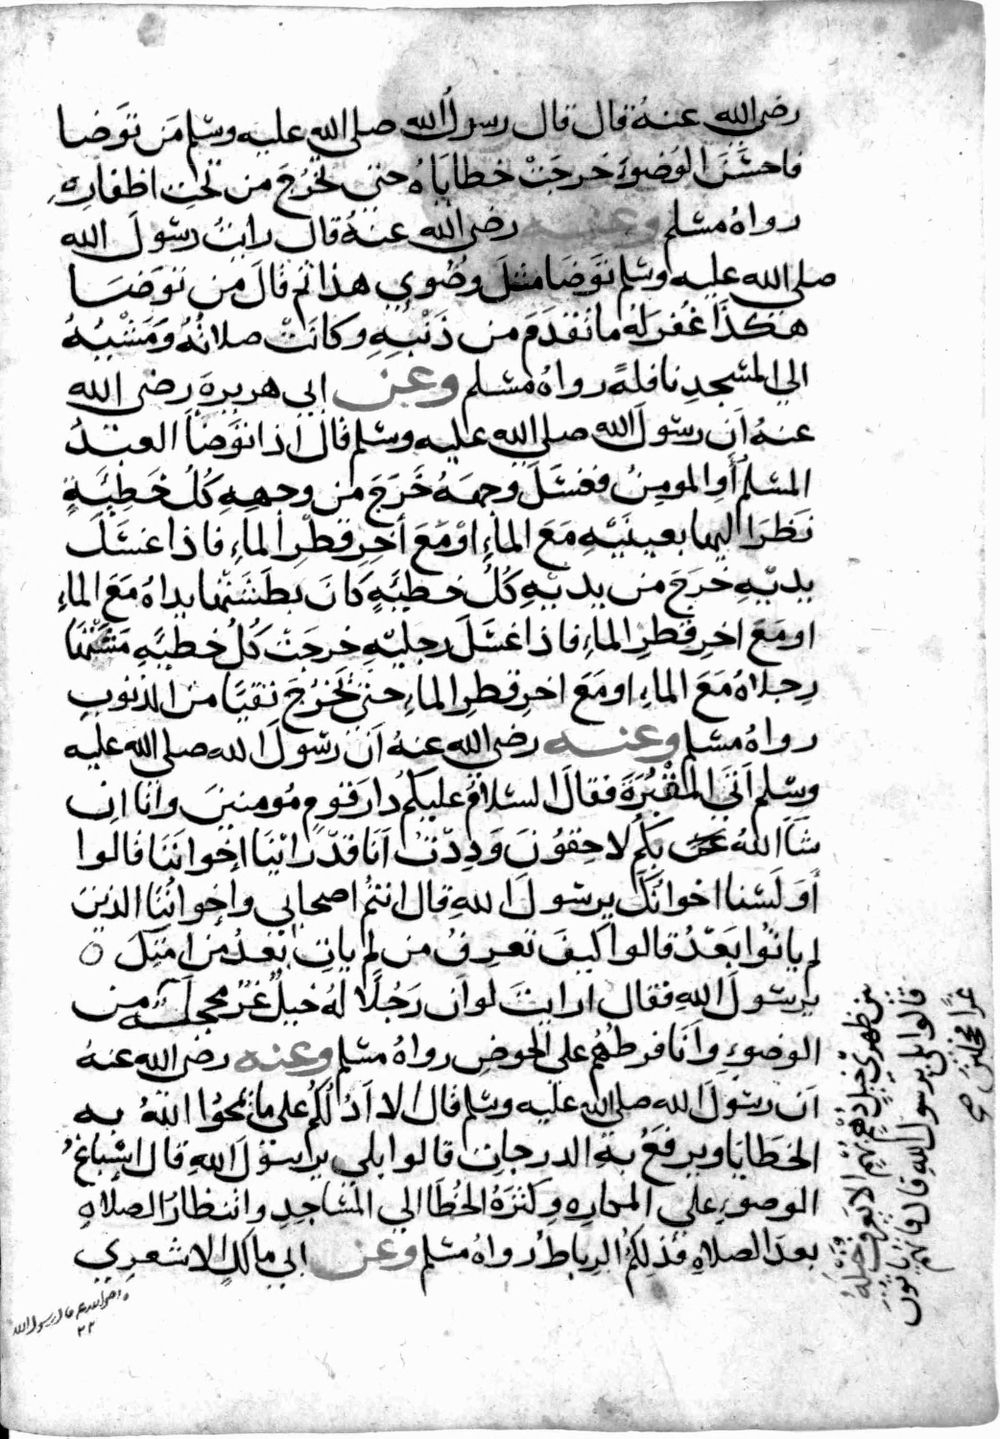 رضي الله عنهُ قال قال رسولُ الله صلى الله عليه وسلم مَن توَضا
فاحسَنَ الوُضوءَ خرجَتْ خطايَاهُ حتى تخرُجَ من تحتِ اظفارِهِ
رواهُ مسلم وعنه رضي الله عنهُ قال رايتُ رسُولَ الله
صلى الله عليه وسلم توَضَا مثلَ وضُوي هذا ثم قالَ من توَضَا
هكذا غُفرَ لهُ ما تقدَمَ من ذنبِهِ وكانَتْ صلاتُهُ ومَشْيُهُ
الي المسجدِ نافلةً رواهُ مسلم وعن ابي هريرةَ رضي الله
عنهُ اَن رسُولَ الله صلى الله عليه وسلم قال اذا توَضَا العبدُ
المسلمُ أَوِ المومِنُ فغسَلَ وجهَهُ خَرجَ من وجهِهِ كُلُ خَطِيئةٍ
نَظرَ اليها بعينَيْهِ مَعَ الماءِ اوْ مَعَ أَخرِ قطْرِ الماءِ فاذا غسَلَ
يديْهِ خَرجَ من يديْهِ كُلُ خطيَّةٍ كانَ بطشَتْها يداهُ مَعَ الماءِ
او مَعَ اخرِ قطرِ الماءِ فاذا غسَلَ رجليْهِ خرجَتْ كلُ خطيَّةٍ مشَتْها
رجلاهُ مَعَ الماءِ او مَعَ اخرِ قطرِ الماءِ حتى يخرُجَ نقيًا من الذنوبِ
رواهُ مسلم وعنه رضي الله عنهُ اَن رسُولَ الله صلى الله عليه
وسلم اَتَى المَقْبُرَةَ فقالَ السلامُ عليكم دارَ قومٍ مُومنينَ وانا ان
شآ اللهُ بكم لاحِقُونَ وَدِدْتُ اَنا قدْ رَايْنَا اخْوانَنَا قالوا
أَوَلَسْنا اخوانَكَ يرسُولَ اللهِ قال انتُم اصحابي واِخوانُنَا الذينَ
لم ياتُوا بَعْدُ قالوا كيفَ تَعرِفُ من لم يات بعدُ من امتِكَ
يرسُولَ اللهِ فقال ارايتَ لو اَن رَجُلًا لهُ خيلٌ غرٌ محجلة من
الوضوءِ وَاَنا فرطُهُم على الحوضِ رواهُ مسلم وعنه رضي الله عنهُ
اَن رسُولَ الله صلى الله عليه وسلم قال الا اَدُلُكُم على ما يمحُوا اللهُ به
الخطايَا ويرفَعُ بهِ الدرجاتِ قالوا بلي يرسُولَ اللهِ قال اسْبَاغُ
الوضوءِ على المكارِهِ وكثرَةُ الخُطَا الي المسَاجدِ وانتظارُ الصلاةِ
بعدَ الصلاةِ فذلِكمُ الرِباطُ رواهُ مسلم وعن ابي مالكٍ الاشعري
رضي الله عنه قال رسول الله
٢٢
بين ظهري خيل دهم بهم الا يعرف خيله
قالوا بلي يرسول الله قال فانهم ياتون
غرا محجلين صح